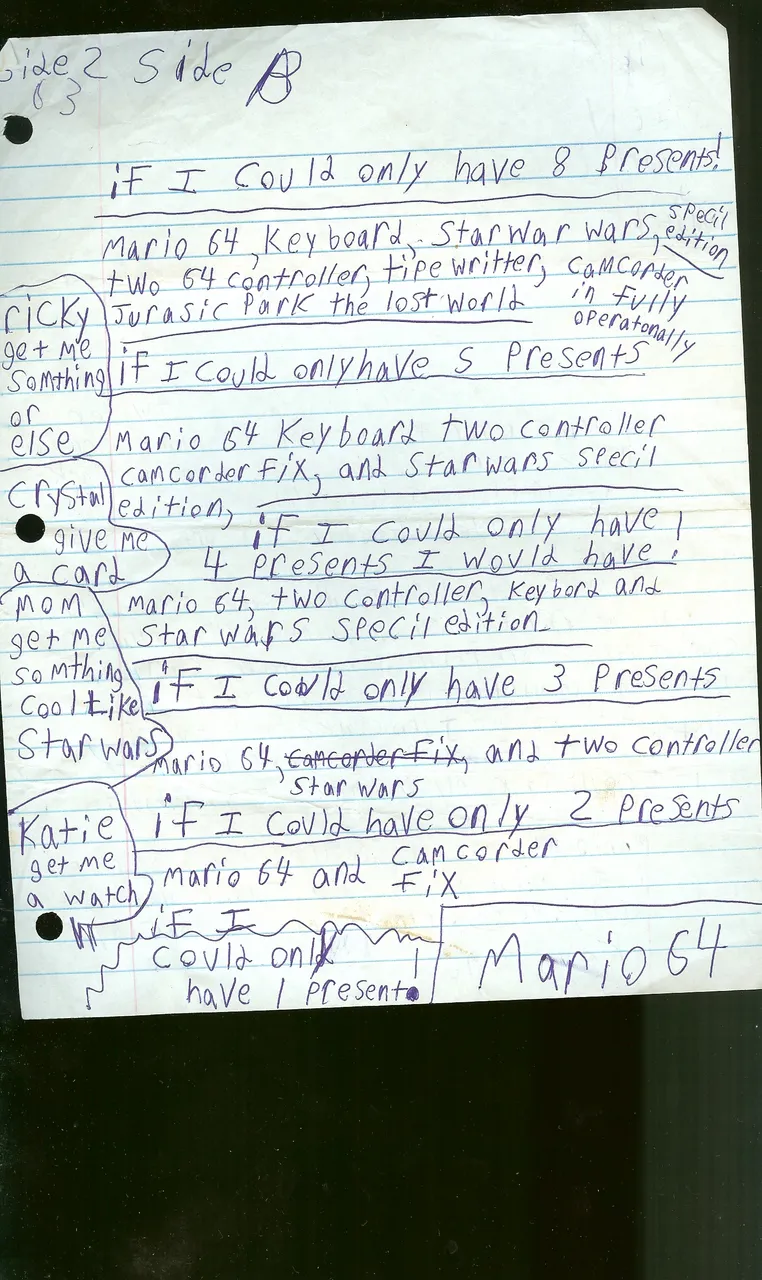 Side 2 Side B
63
if I Could only have 8 Presents!
Mario 64, Keyboard, Starwar wars, specil edition
two 64 controller, tipe writter, camcorder in fully operatonally
Jurasic Park the lost world
ricky
get me
somthing
or
else
if I could only have 5 Presents
Mario 64 Keyboard two controller
camcorder fix, and Star wars specil
edition,
Crystal
give me
a card
if I could only have
4 presents I would have!
Mario 64, two controller, Keybord and
Star wars specil edition
Mom
get me
somthing
cool Like
Star wars
if I could only have 3 Presents
Mario 64, camcorder fix, and two controller
Star wars
Katie
get me
a watch
if I could have only 2 presents
Mario 64 and camcorder
fix
if I
could only
have 1 present!
Mario 64